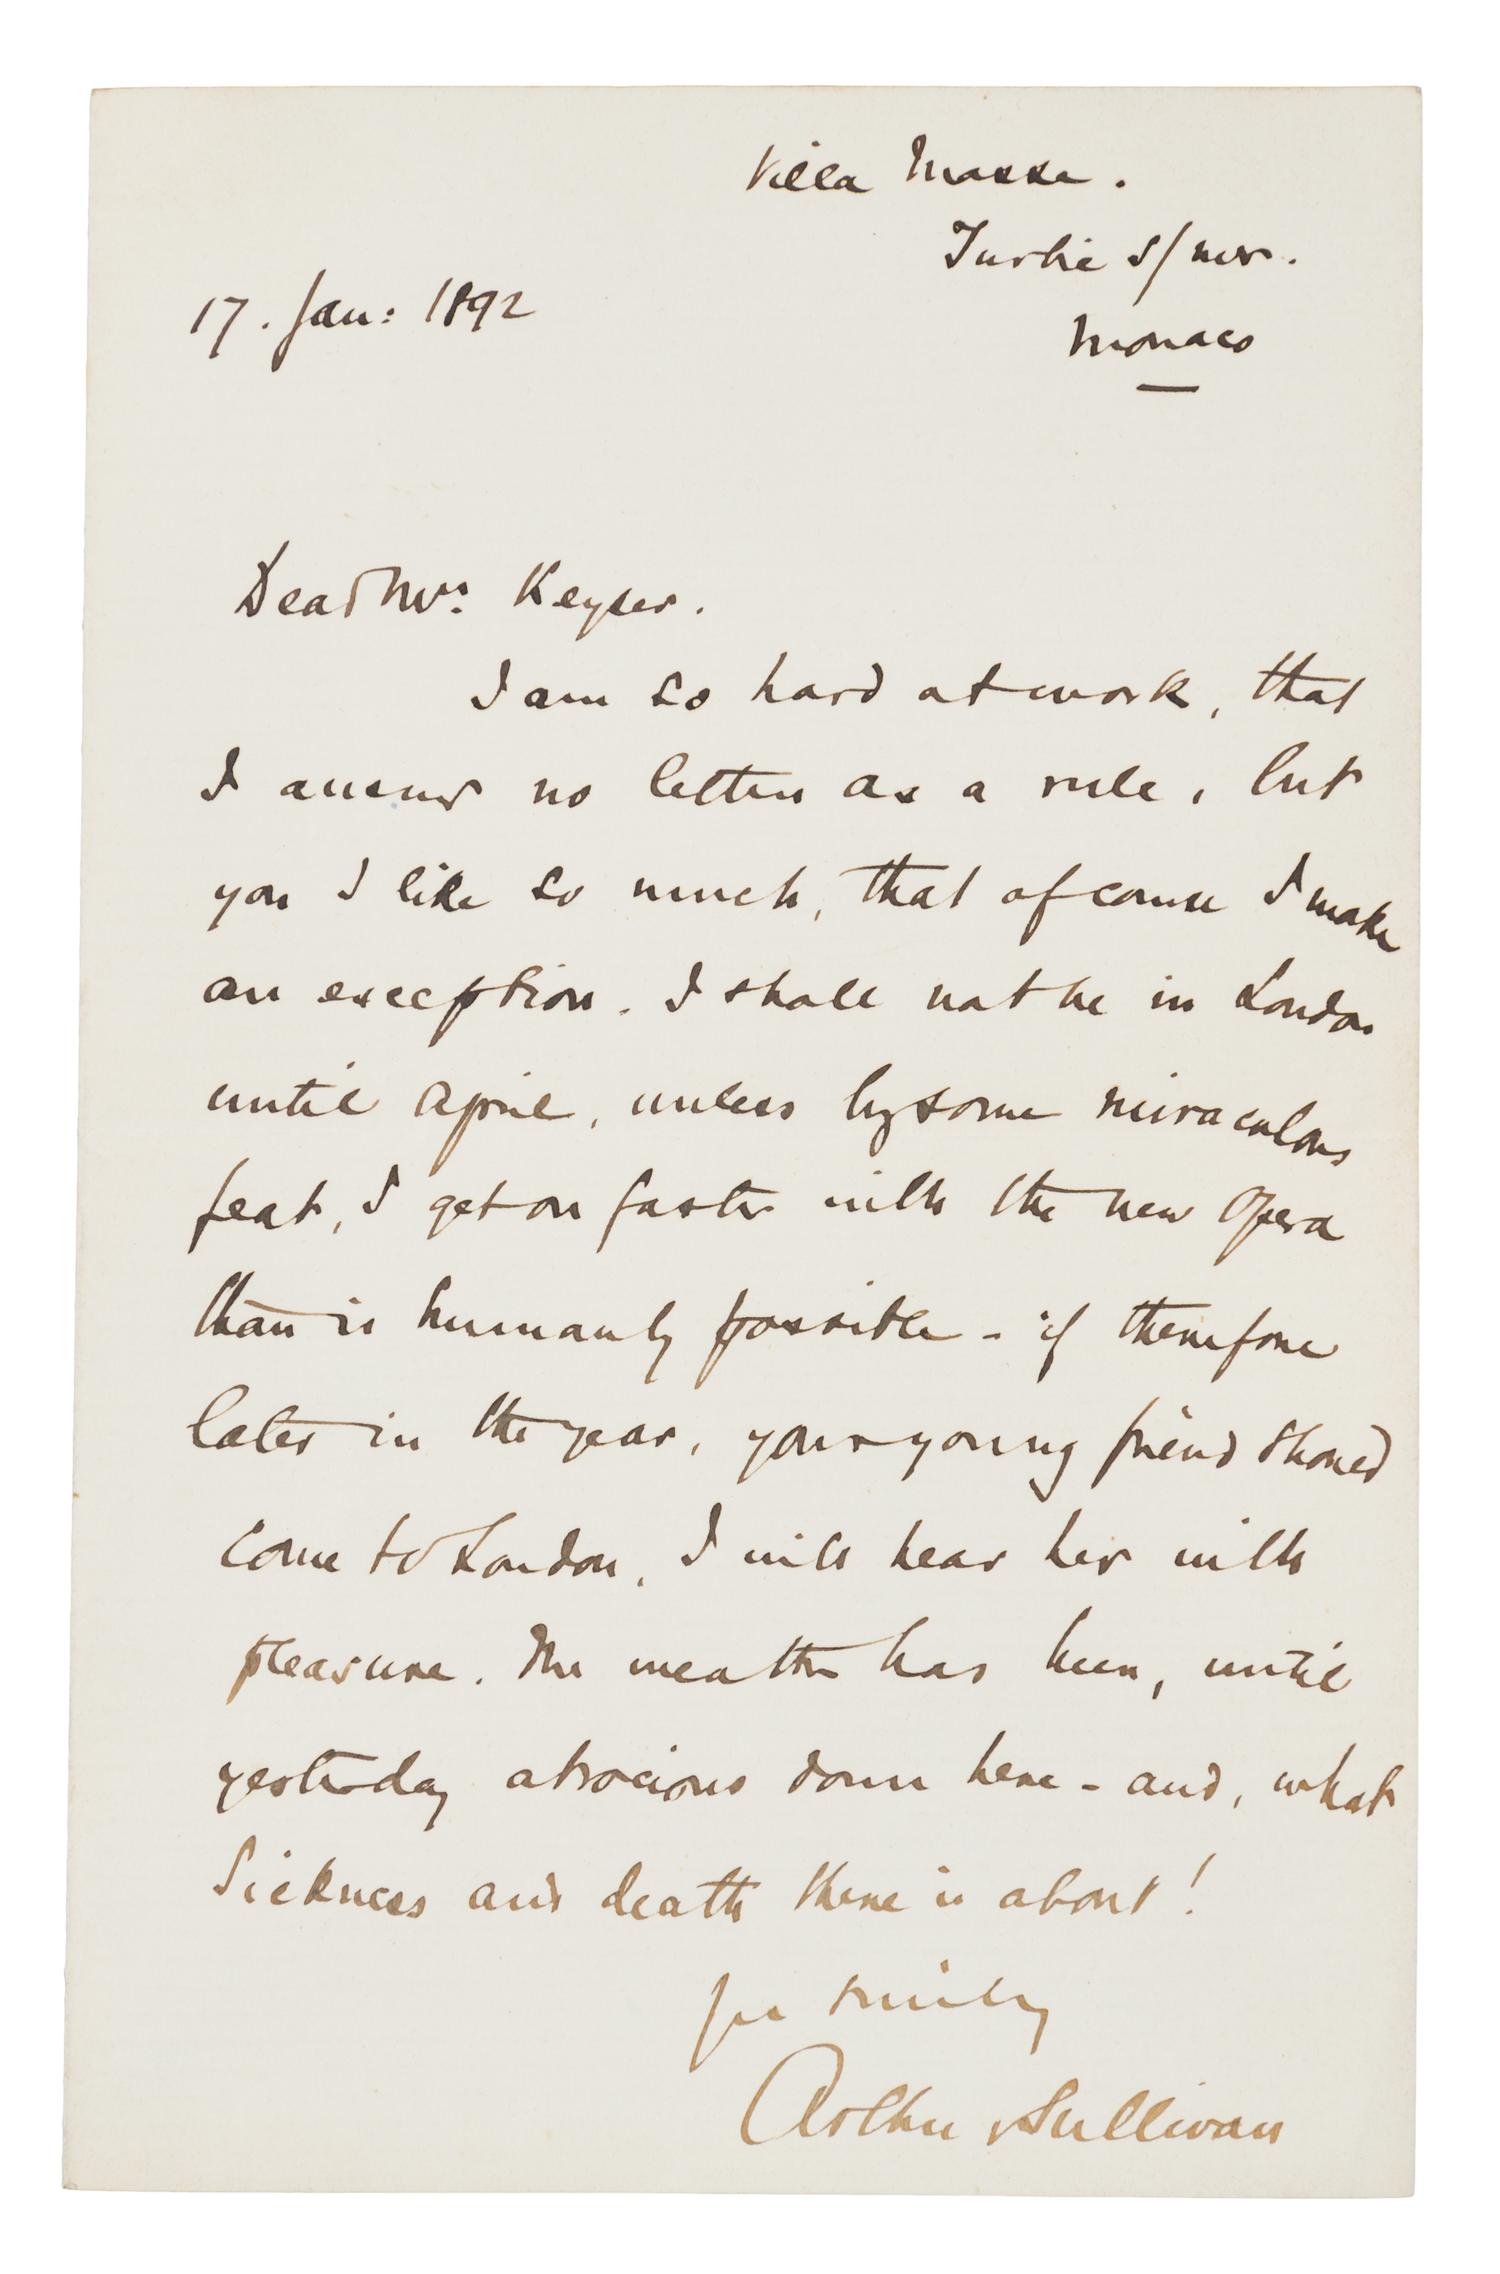 Villa Masse.
Turbie s/ mer.
Monaco
17. Jan: 1892
Dear Mrs. Keyser.
I am so hard at work, that
I answer no letters as a rule, but
you I like so much, that of course I make
an exception. I shall not be in London
until April, unless by some miraculous
feat, I get on faster with the new Opera
than is humanly possible - if therefore
later in the year, your young friend should
come to London, I will hear her with
pleasure. The weather has been, until
yesterday atrocious down here - and, what
sickness and death there is about!
Yrs sincerely
Arthur Sullivan